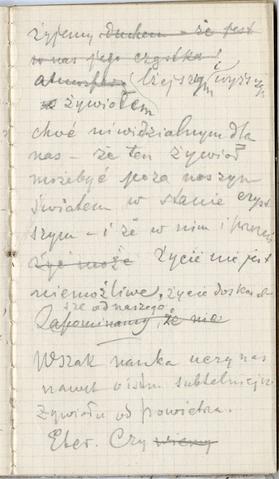 żyjemy duchem – że jest
w nas jego cząstka!
atmosfera (lżejszym wyższym
żywiołem)
choć niewidzialnym dla
nas – że ten żywioł
może być poza naszym
światem w stanie czyst
szym – i że w nim i
żyć może życie nie jest
niemożliwe, życie doskonal
sze od naszego.
Zapominamy że nie
Wszak nauka uczy nas
nawet o istn. subtelniejsz
żywiołu od powietrza.
Eter. Czy wiemy